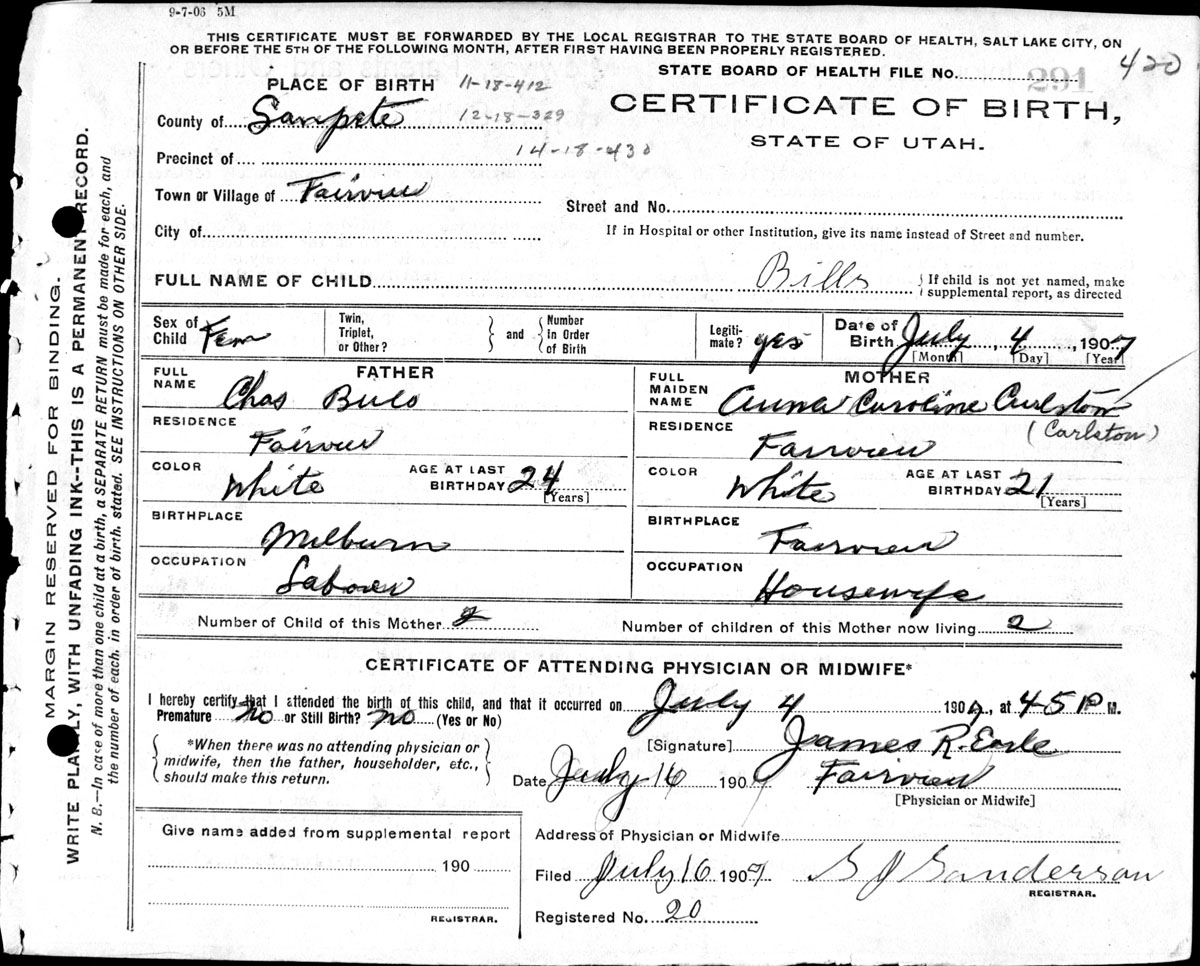 9-7-06 5M
THIS CERTIFICATE MUST BE FORWARDED BY THE LOCAL REGISTRAR TO THE STATE BOARD OF HEALTH, SALT LAKE CITY, ON
OR BEFORE THE 5TH OF THE FOLLOWING MONTH, AFTER FIRST HAVING BEEN PROPERLY REGISTERED.
STATE BOARD OF HEALTH FILE No. 291 420
PLACE OF BIRTH 11-18-412
CERTIFICATE OF BIRTH,
County of Sanpete 12-18-329
STATE OF UTAH.
Precinct of 14-18-430
Town or Village of Fairview
Street and No.
City of
If in Hospital or other Institution, give its name instead of Street and number.
FULL NAME OF CHILD Bills { If child is not yet named, make
supplemental report, as directed
Sex of Child Fem
Twin, Triplet, or Other? } and { Number in Order of Birth
Legiti- mate? yes
Date of Birth July 4, 1907
[Month] [Day] [Year]
FATHER
FULL NAME Chas Bills
RESIDENCE Fairview
COLOR White AGE AT LAST BIRTHDAY 24 [Years]
BIRTHPLACE Milburn
OCCUPATION Laborer
MOTHER
FULL MAIDEN NAME Anna Caroline Curlston
(Carlston)
RESIDENCE Fairview
COLOR White AGE AT LAST BIRTHDAY 21 [Years]
BIRTHPLACE Fairview
OCCUPATION Housewife
Number of Child of this Mother 2 Number of children of this Mother now living 2
CERTIFICATE OF ATTENDING PHYSICIAN OR MIDWIFE*
I hereby certify that I attended the birth of this child, and that it occurred on July 4 1907, at 45 P M.
Premature no or Still Birth? no (Yes or No)
{ *When there was no attending physician or
midwife, then the father, householder, etc.,
should make this return. }
[Signature] James R. Earle
Date July 16 1907 Fairview
[Physician or Midwife]
Give name added from supplemental report
190
REGISTRAR.
Address of Physician or Midwife
Filed July 16 1907 Sanderson
REGISTRAR.
Registered No. 20
MARGIN RESERVED FOR BINDING.
WRITE PLAINLY, WITH UNFADING INK--THIS IS A PERMANENT RECORD.
N. B.—In case of more than one child at a birth, a SEPARATE RETURN must be made for each, and
the number of each, in order of birth, stated. SEE INSTRUCTIONS ON OTHER SIDE.